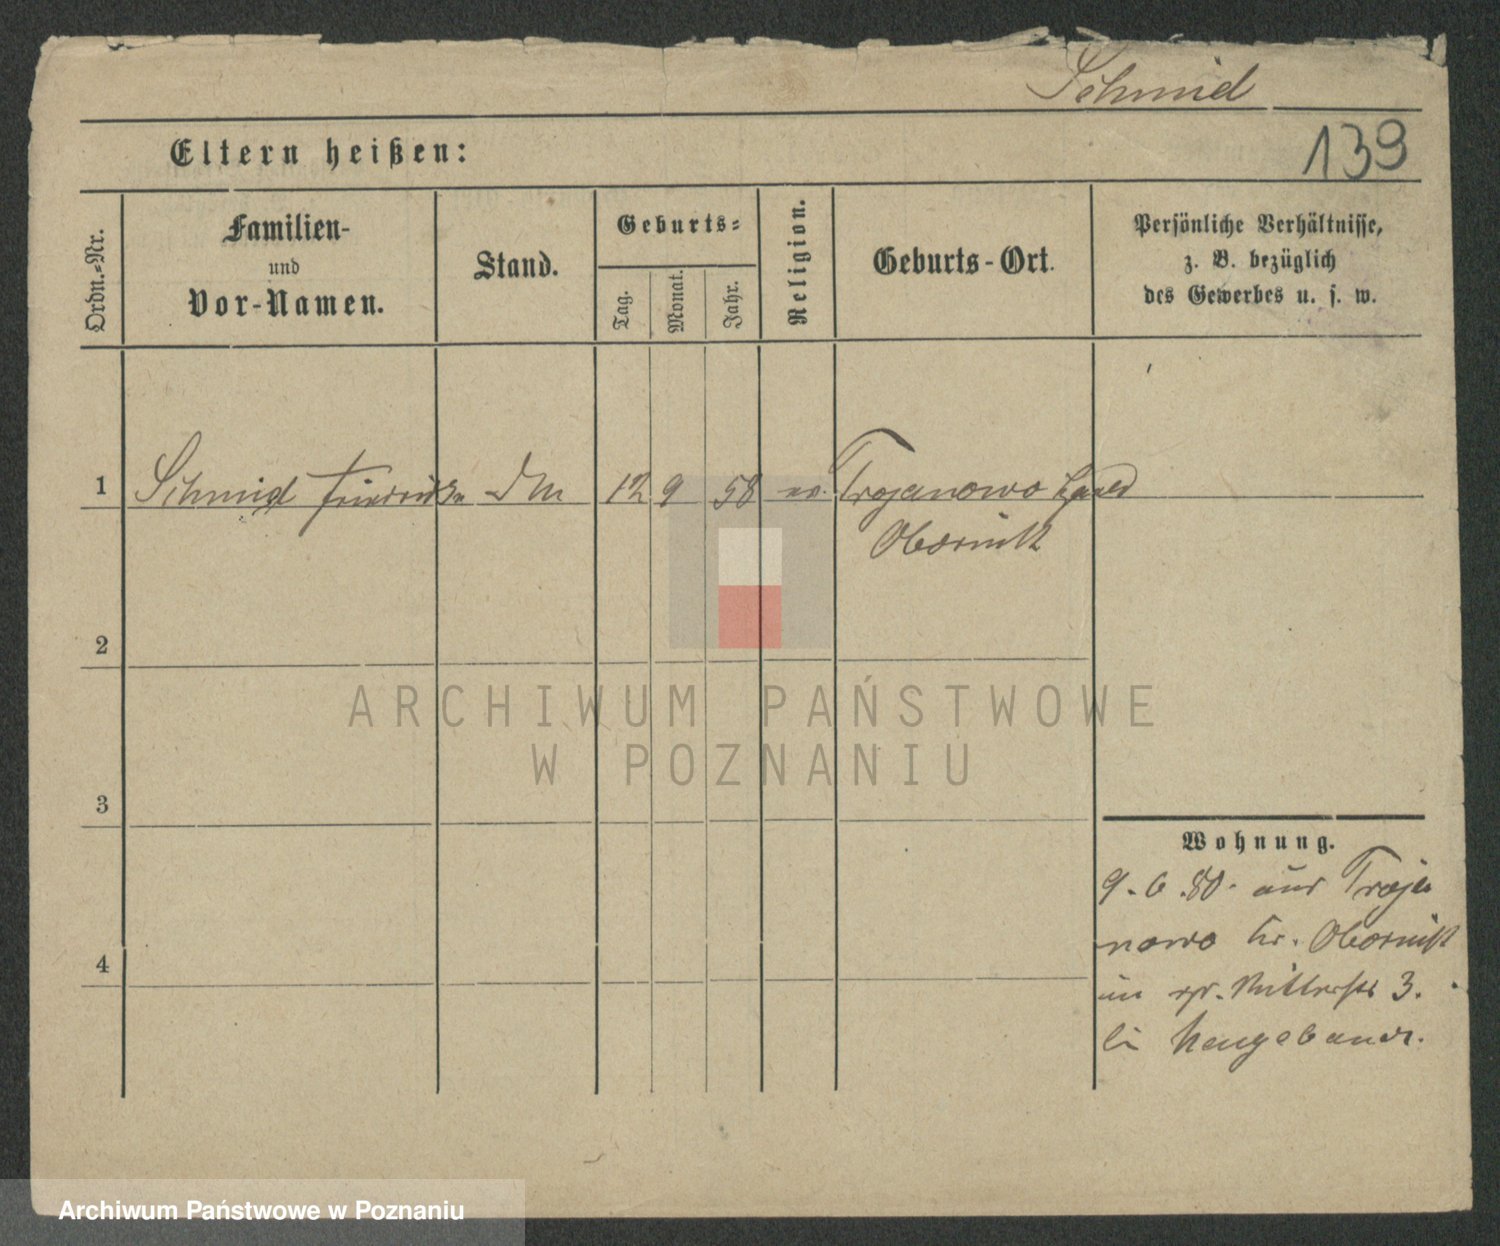 Schmid
139
Eltern heißen:
Ordn.=Nr.
Familien-
und
Vor-Namen.
Stand.
Geburts=
Tag.
Monat.
Jahr.
Religion.
Geburts-Ort.
Persönliche Verhältnisse,
z. B. bezüglich
des Gewerbes u. s. w.
1 Schmid 12 9 58 Trojanowo
Obornik
2
3
4
Wohnung.
9.6.80. aus Troja
nowo Kr. Obornik
3.
ARCHIWUM PAŃSTWOWE
W POZNANIU
Archiwum Państwowe w Poznaniu